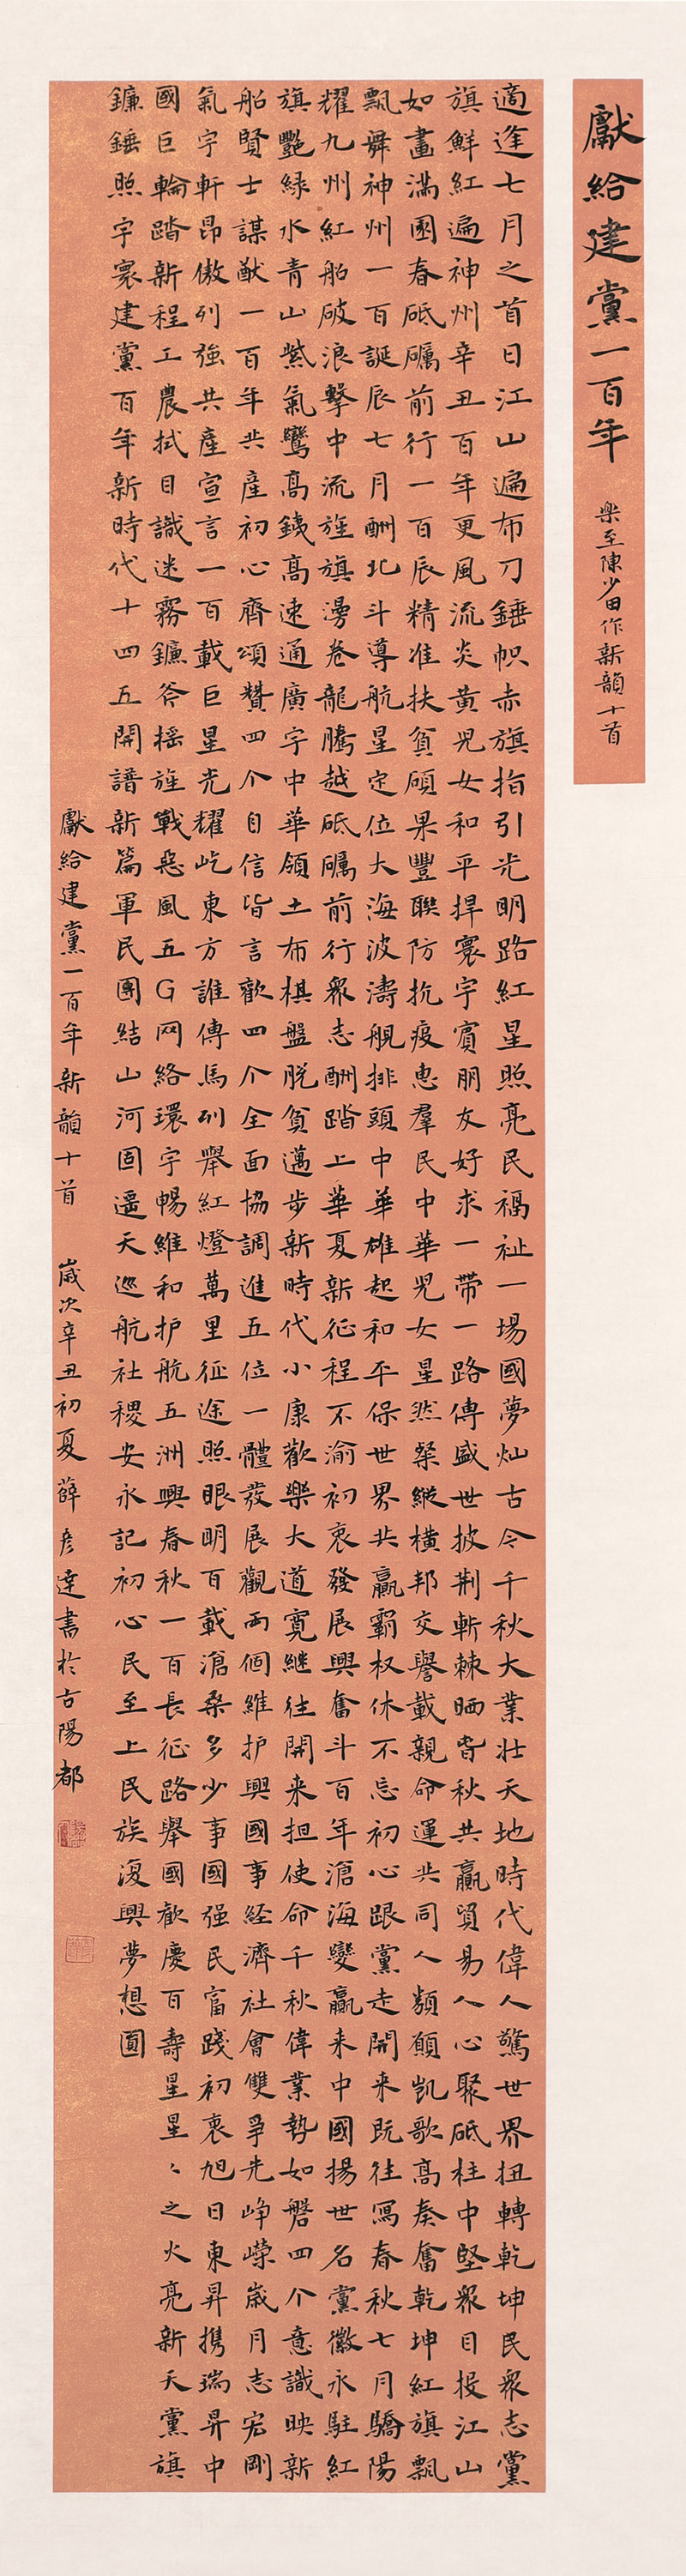 獻給建黨一百年 樂至陳少田作新韻十首
適逢七月之首日江山遍布刀錘幟赤旗指引光明路紅星照亮民福祉一場國夢灿古今千秋大業壯天地時代偉人驚世界扭轉乾坤民衆志黨
旗鮮紅遍神州辛丑百年更風流炎黃兒女和平捍寰宇賓朋友好求一帶一路傳盛世披荆斬棘晒眚秋共贏貿易人心聚砥柱中堅衆目投江山
如畫滿園春砥礪前行一百辰精准扶貧碩果豐聯防抗疫惠羣民中華兒女星然粲縱橫邦交譽載親命運共同人類願凱歌高奏奮乾坤紅旗飄
飄舞神州一百誕辰七月酬北斗導航星定位大海波濤舰排頭中華雄起和平保世界共贏霸权休不忘初心跟黨走開来既往寫春秋七月驕陽
耀九州紅船破浪擊中流旌旗漫卷龍騰越砥礪前行衆志酬踏上華夏新征程不渝初衷發展興奮斗百年滄海變贏来中國揚世名黨徽永駐紅
旗艷綠水青山紫氣鸞高鉄高速通廣宇中華領土布棋盤脱貧邁步新時代小康歡樂大道寬繼往開来担使命千秋偉業勢如磐四个意識映新
船賢士謀猷一百年共產初心齊頌贊四个自信皆言歡四个全面協調進五位一體發展觀兩個維护興國事经濟社會雙爭先峥嶸歲月志宏剛
氣宇軒昂傲列強共產宣言一百載巨星光耀屹東方誰傳馬列舉紅燈萬里征途照眼明百載滄桑多少事國强民富踐初衷旭日東昇携瑞昇中
國巨輪踏新程工農拭目識迷霧鐮斧摇旌戰惡風五G网絡環宇暢維和护航五洲興春秋一百長征路舉國歡慶百壽星星々之火亮新天黨旗
鐮錘照宇寰建黨百年新時代十四五開譜新篇軍民團結山河固遥天巡航社稷安永記初心民至上民族復興夢想圓
獻給建黨一百年新韻十首 歲次辛丑初夏薛彥達書於古陽都